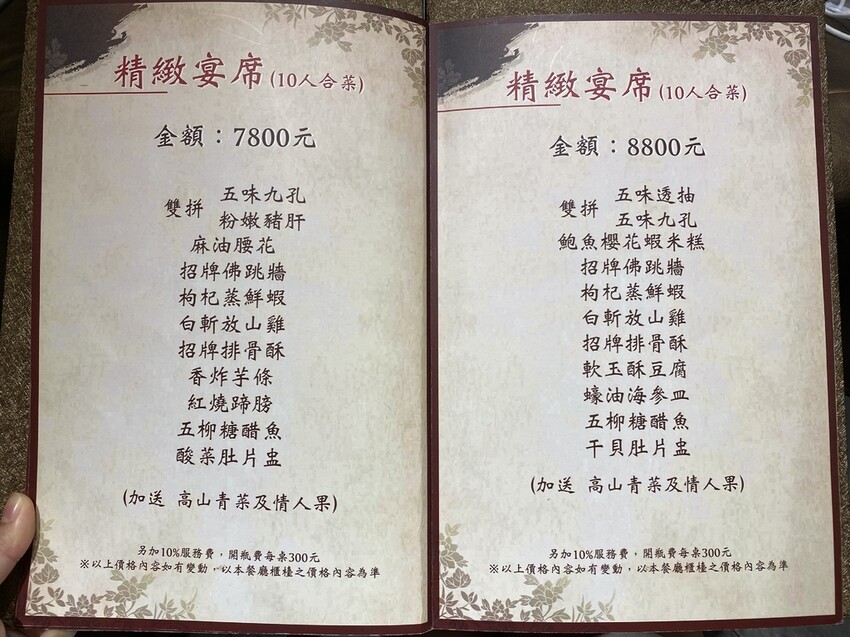 精緻宴席(10人合菜)
金額：7800元
雙拼
五味九孔
粉嫩豬肝
麻油腰花
招牌佛跳牆
枸杞蒸鮮蝦
白斬放山雞
招牌排骨酥
香炸芋條
紅燒蹄膀
五柳糖醋魚
酸菜肚片盅
(加送 高山青菜及情人果)
另加10%服務費，開瓶費每桌300元
※以上價格內容如有變動，以本餐廳櫃檯之價格內容為準
精緻宴席(10人合菜)
金額：8800元
雙拼
五味透抽
五味九孔
鮑魚櫻花蝦米糕
招牌佛跳牆
枸杞蒸鮮蝦
白斬放山雞
招牌排骨酥
軟玉酥豆腐
蠔油海參皿
五柳糖醋魚
干貝肚片盅
(加送 高山青菜及情人果)
另加10%服務費，開瓶費每桌300元
※以上價格內容如有變動，以本餐廳櫃檯之價格內容為準